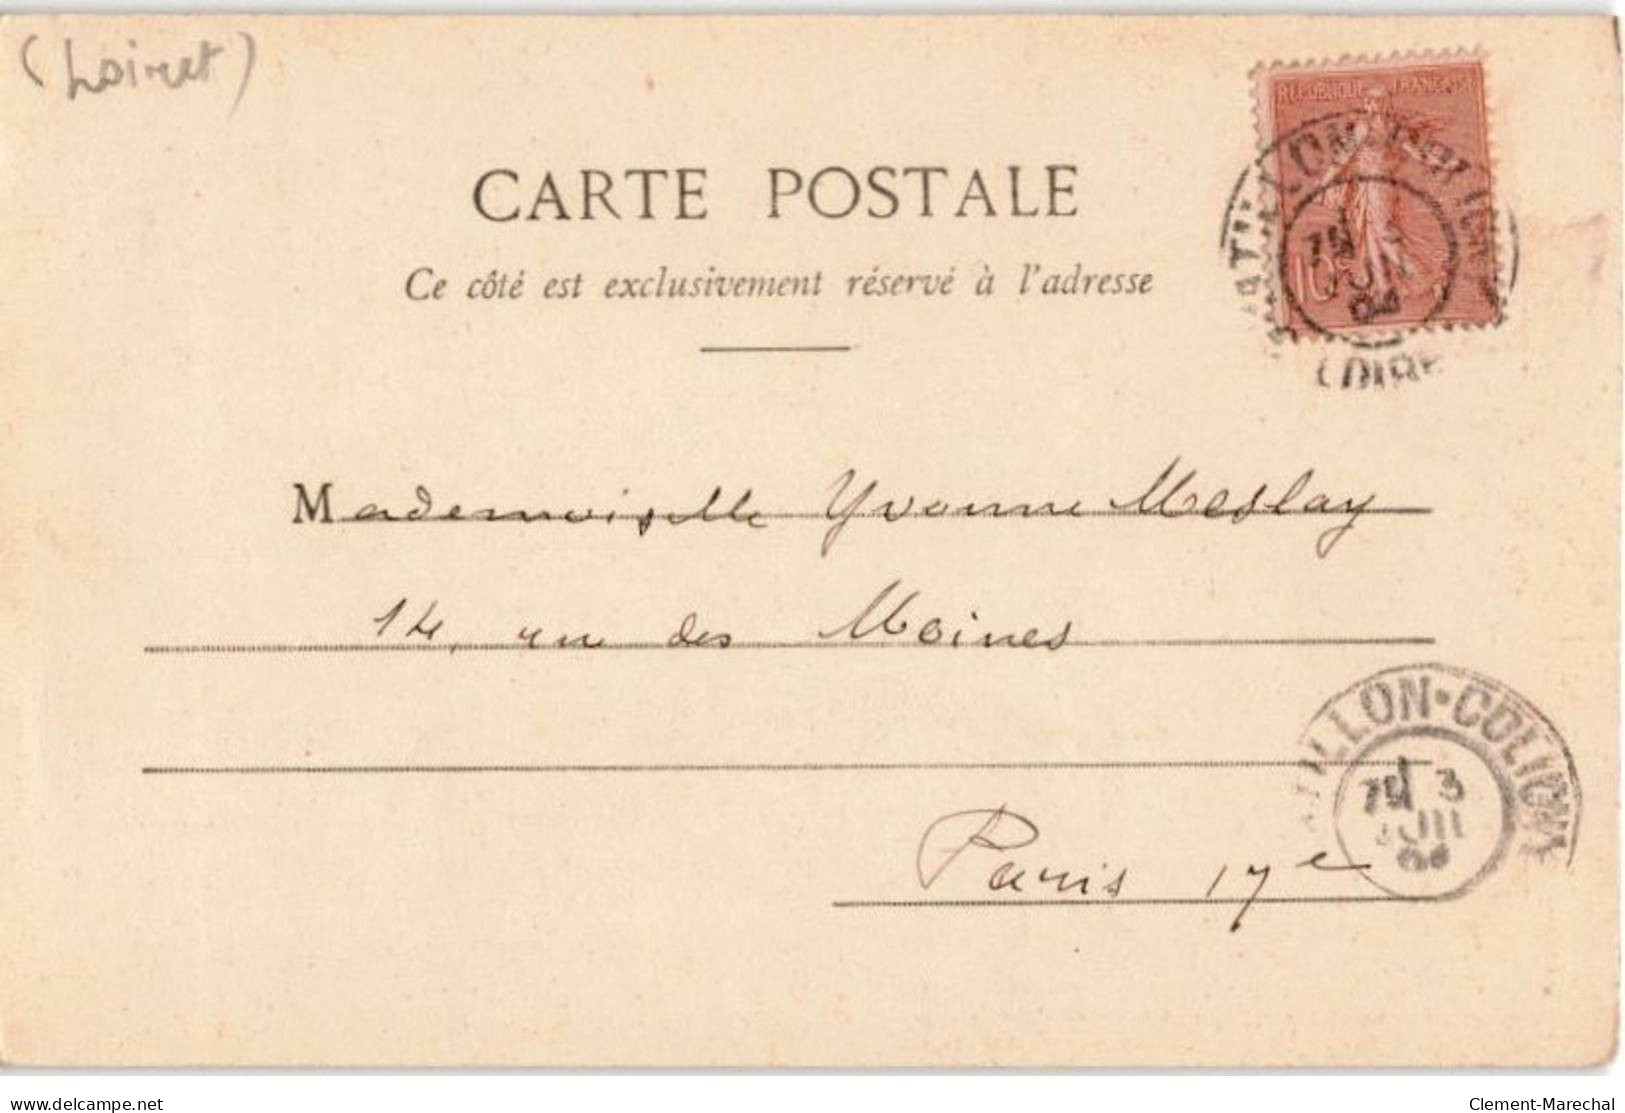 (Loiret)
RÉPUBLIQUE FRANÇAISE
10
LOIRE
CARTE POSTALE
Ce côté est exclusivement réservé à l'adresse
Mademoiselle Yvonne Meslay
14, rue des Moines
ILLON-COLIGNY
3
Paris 17e
delcampe.net
Clement-Marechal